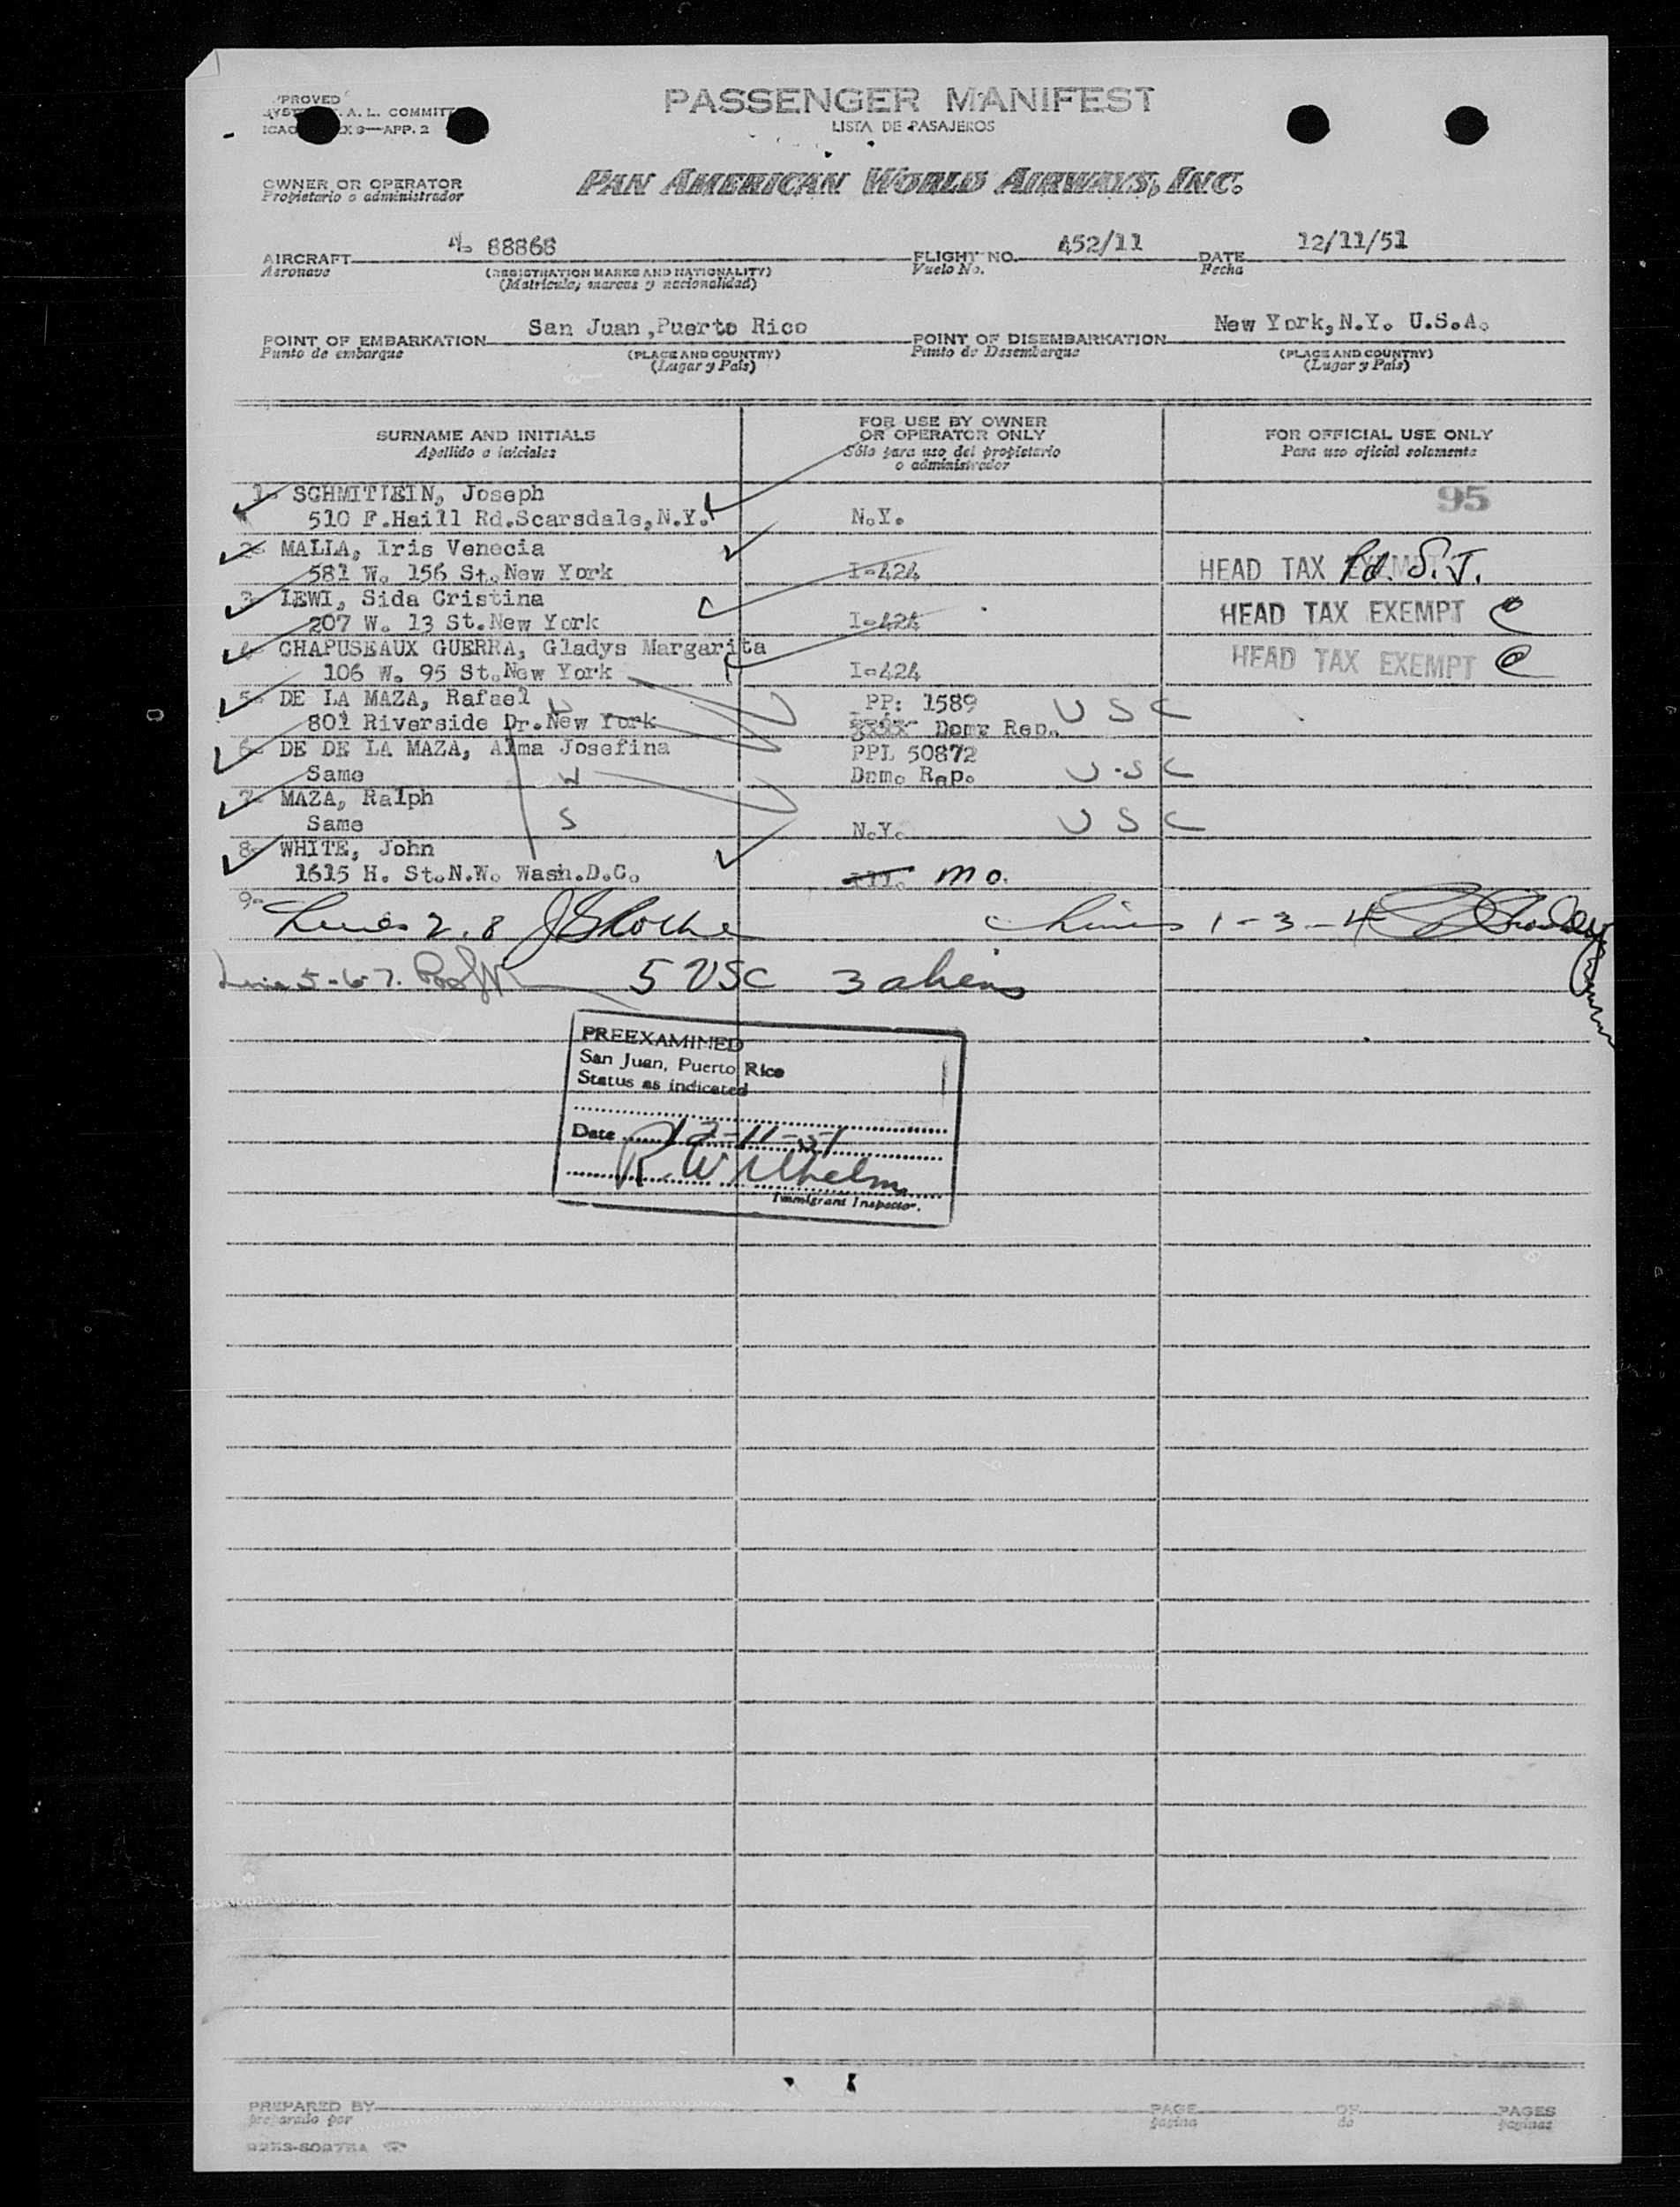 PASSENGER MANIFEST
LISTA DE PASAJEROS
A. L.
APP. 2
OWNER OR OPERATOR
Propietario o administrador
PAN AMERICAN WORLD AIRWAYS, INC.
AIRCRAFT 88868 FLIGHT NO. 452/11 DATE 12/11/51
Aeronave (REGISTRATION MARKS AND NATIONALITY) Vuelo No. Fecha
(Matricula, marcas y nacionalidad)
POINT OF EMBARKATION San Juan,Puerto Rico POINT OF DISEMBARKATION New York,N.Y. U.S.A.
Punto de embarque (PLACE AND COUNTRY) Punto de Desembarque (PLACE AND COUNTRY)
(Lugar y País) (Lugar y País)
SURNAME AND INITIALS FOR USE BY OWNER OR OPERATOR ONLY FOR OFFICIAL USE ONLY
Apellido e iniciales Sólo para uso del propietario o administrador Para uso oficial solamente
1- SCHMITIEIN, Joseph 95
510 F.Haill Rd.Scarsdale,N.Y. N.Y.
2- MALLA, Iris Venecia
581 W. 156 St.New York I-424 HEAD TAX Pd. S.J.
3- LEWI, Sida Cristina
207 W. 13 St.New York I-424 HEAD TAX EXEMPT
4- CHAPUSEAUX GUERRA, Gladys Margarita
106 W. 95 St.New York I-424 HEAD TAX EXEMPT
5- DE LA MAZA, Rafael PP: 1589 USC
801 Riverside Dr.New York Dom. Rep.
6- DE DE LA MAZA, Alma Josefina PPL 50872
Same W Dom. Rep. U.S C
7- MAZA, Ralph
Same S N.Y. USC
8- WHITE, John
1615 H. St.N.W. Wash.D.C. Mo.
9-
Lines 2.8 Lines 1-3-4
Lines 5-6-7. 5 USC 3 aliens
PREEXAMINED
San Juan, Puerto Rico
Status as indicated
Date 12-11-51
R. Wilhelm
Immigrant Inspector.
PREPARED BY PAGE OF PAGES
preparado por pagina de paginas